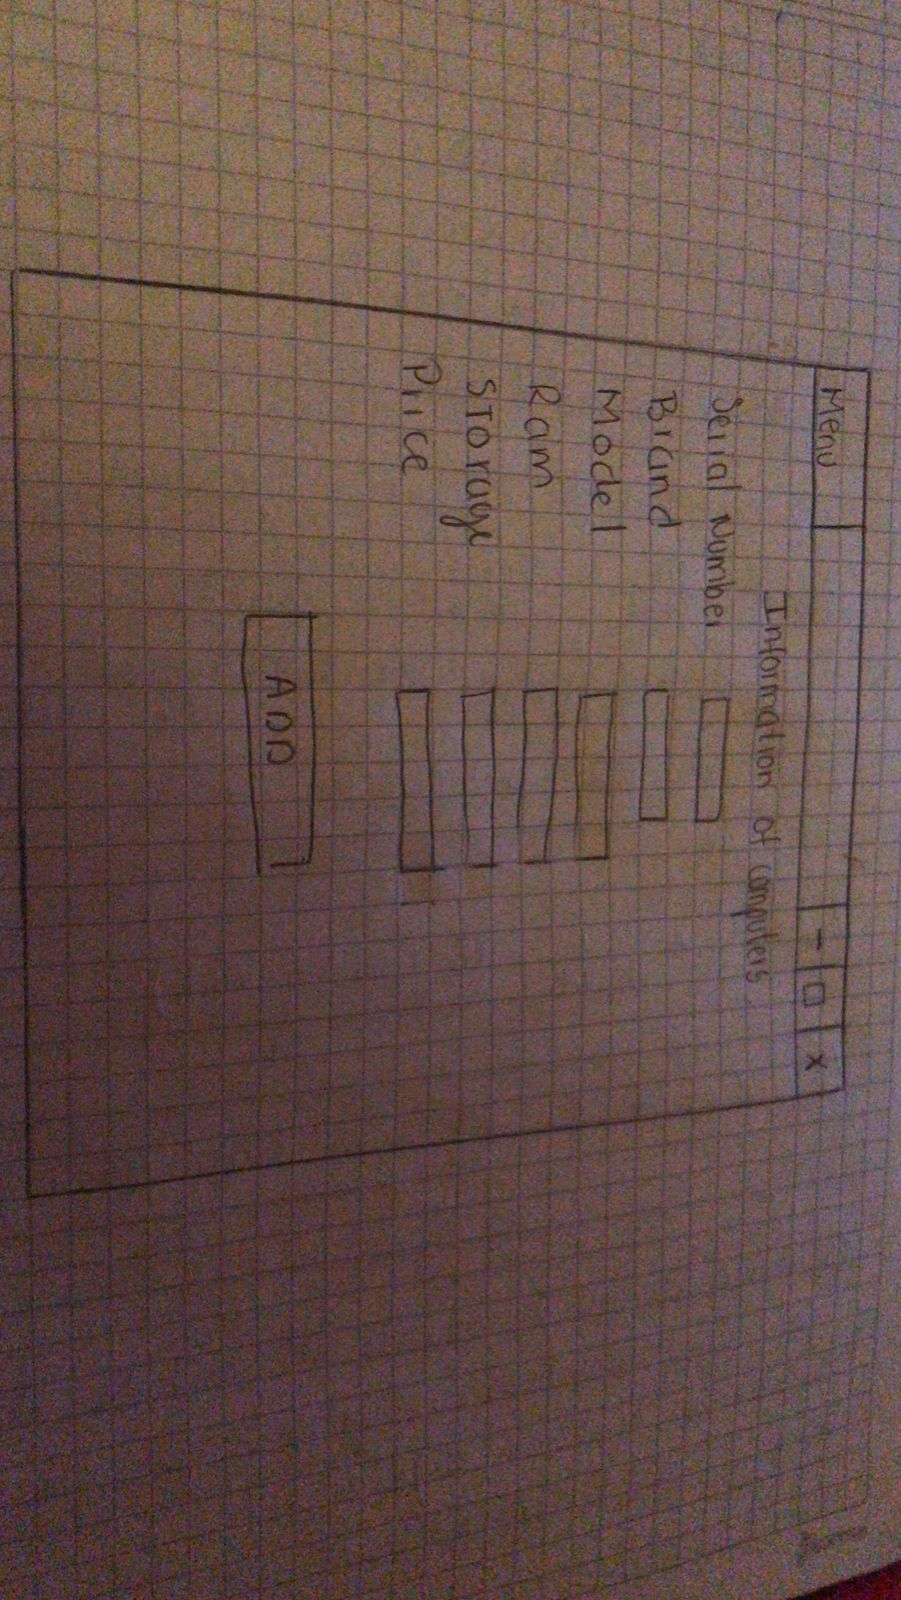 Menu - □ x
Information of computers
Serial Number
Brand
Model
Ram
Storage
Price
ADD